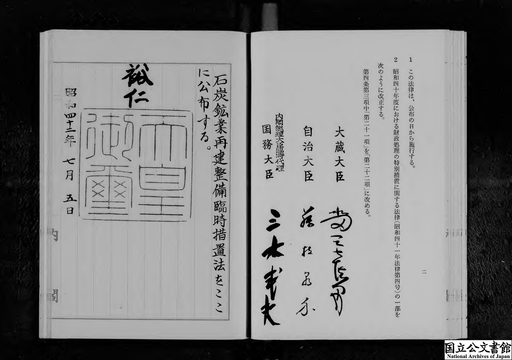 二
1 この法律は、公布の日から施行する。
2 昭和四十年度における財政処理の特別措置に関する法律(昭和四十一年法律第四号)の一部を
次のように改正する。
第四条第三項中「第二十一項」を「第二十二項」に改める。
大蔵大臣
自治大臣 藤枝泉介
内閣総理大臣臨時代理
国務大臣 三木武夫
石炭鉱業再建整備臨時措置法をここ
に公布する。
裕仁
天皇
御璽
昭和四十二年七月五日
内閣
国立公文書館
National Archives of Japan